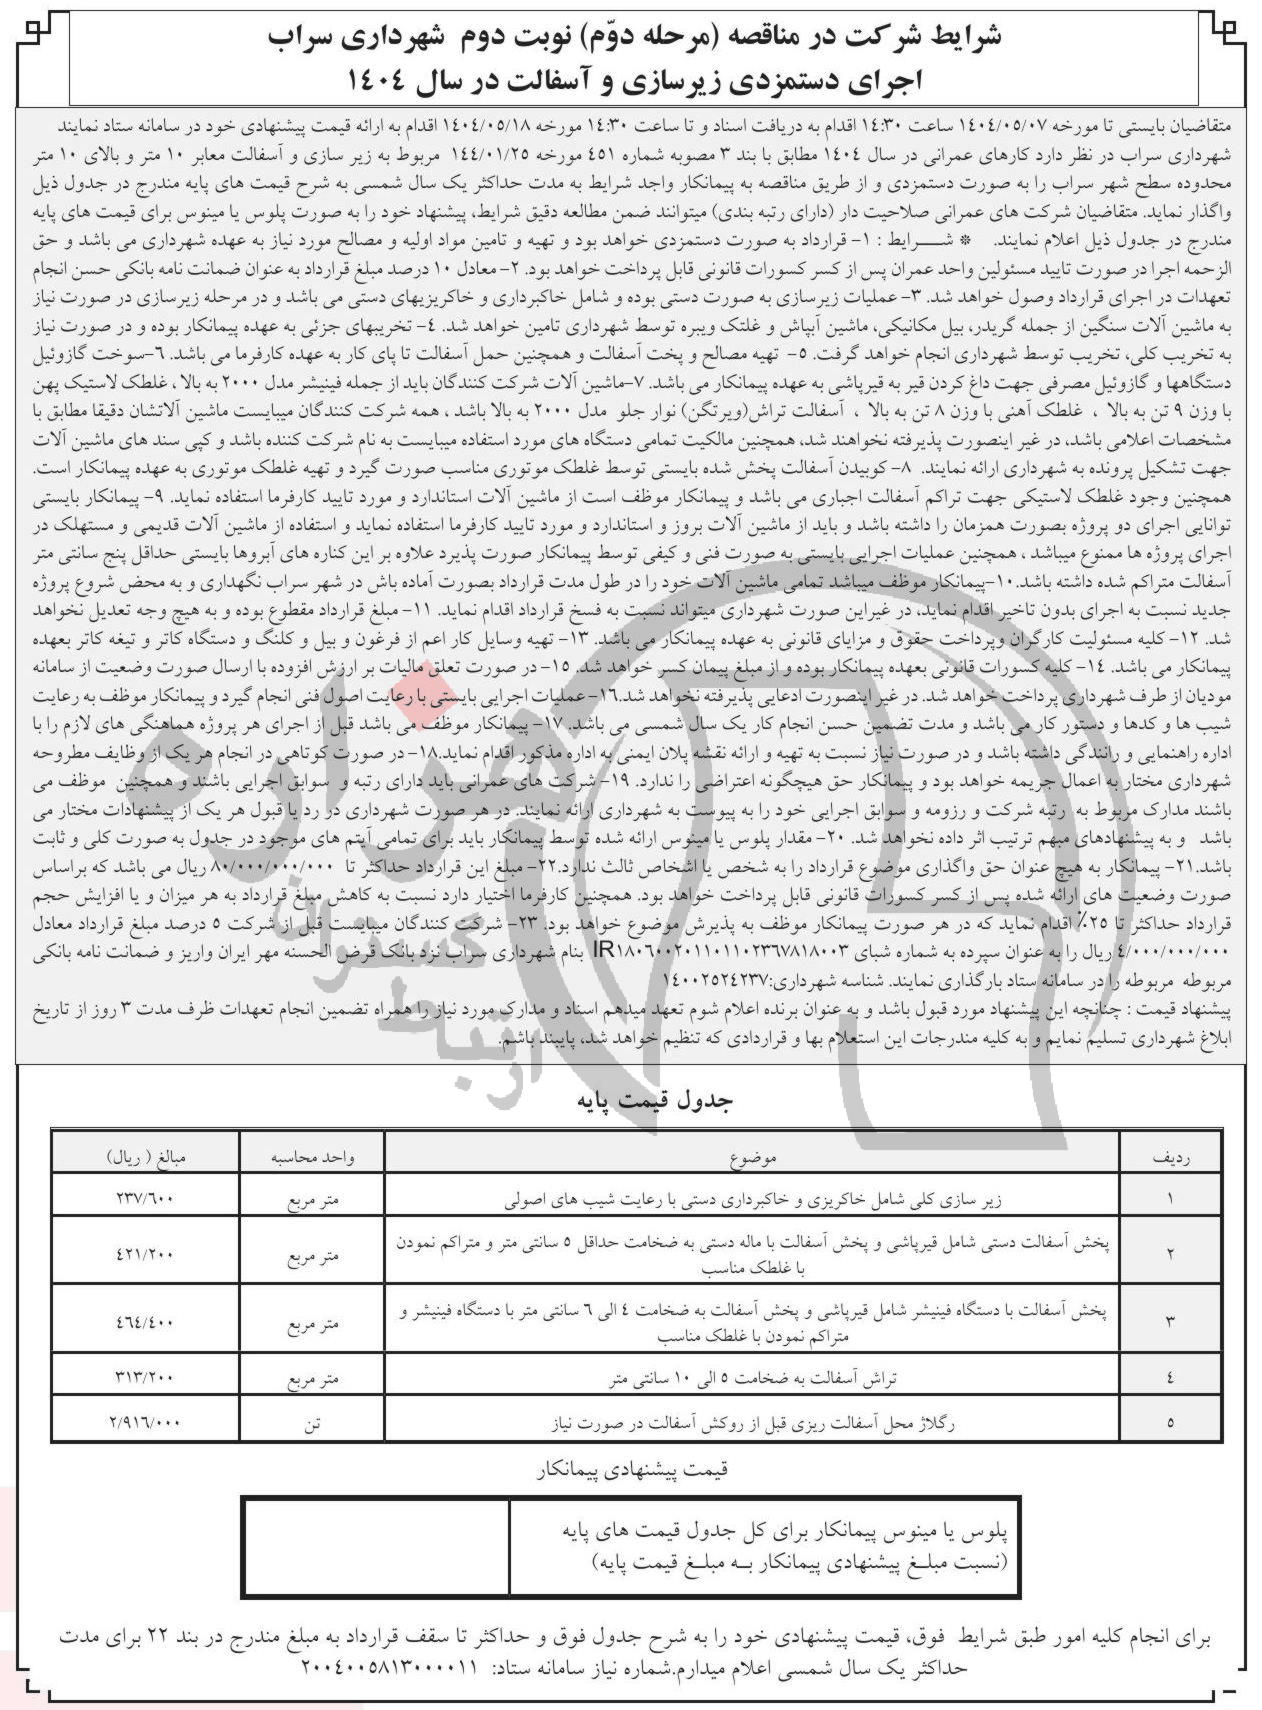 شرایط شرکت در مناقصه (مرحله دوّم) نوبت دوم شهرداری سراب
اجرای دستمزدی زیرسازی و آسفالت در سال ۱٤۰٤
متقاضیان بایستی تا مورخه ۱٤۰٤/۰٥/۰۷ ساعت ۱٤:۳۰ اقدام به دریافت اسناد و تا ساعت ۱٤:۳۰ مورخه ۱٤۰٤/۰٥/۱۸ اقدام به ارائه قیمت پیشنهادی خود در سامانه ستاد نمایند
شهرداری سراب در نظر دارد کارهای عمرانی در سال ۱٤۰٤ مطابق با بند ۳ مصوبه شماره ٤٥۱ مورخه ۱٤٤/۰۱/۲٥ مربوط به زیر سازی و آسفالت معابر ۱۰ متر و بالای ۱۰ متر
محدوده سطح شهر سراب را به صورت دستمزدی و از طریق مناقصه به پیمانکار واجد شرایط به مدت حداکثر یک سال شمسی به شرح قیمت های پایه مندرج در جدول ذیل
واگذار نماید. متقاضیان شرکت های عمرانی صلاحیت دار (دارای رتبه بندی) میتوانند ضمن مطالعه دقیق شرایط، پیشنهاد خود را به صورت پلوس یا مینوس برای قیمت های پایه
مندرج در جدول ذیل اعلام نمایند. * شـــرایط : ۱- قرارداد به صورت دستمزدی خواهد بود و تهیه و تامین مواد اولیه و مصالح مورد نیاز به عهده شهرداری می باشد و حق
الزحمه اجرا در صورت تایید مسئولین واحد عمران پس از کسر کسورات قانونی قابل پرداخت خواهد بود. ۲- معادل ۱۰ درصد مبلغ قرارداد به عنوان ضمانت نامه بانکی حسن انجام
تعهدات در اجرای قرارداد وصول خواهد شد. ۳- عملیات زیرسازی به صورت دستی بوده و شامل خاکبرداری و خاکریزیهای دستی می باشد و در مرحله زیرسازی در صورت نیاز
به ماشین آلات سنگین از جمله گریدر، بیل مکانیکی، ماشین آبپاش و غلتک ویبره توسط شهرداری تامین خواهد شد. ٤- تخریبهای جزئی به عهده پیمانکار بوده و در صورت نیاز
به تخریب کلی، تخریب توسط شهرداری انجام خواهد گرفت. ٥- تهیه مصالح و پخت آسفالت و همچنین حمل آسفالت تا پای کار به عهده کارفرما می باشد. ٦-سوخت گازوئیل
دستگاهها و گازوئیل مصرفی جهت داغ کردن قیر به قیرپاشی به عهده پیمانکار می باشد. ۷-ماشین آلات شرکت کنندگان باید از جمله فینیشر مدل ۲۰۰۰ به بالا ، غلطک لاستیک پهن
با وزن ۹ تن به بالا ، غلطک آهنی با وزن ۸ تن به بالا ، آسفالت تراش(ویرتگن) نوار جلو مدل ۲۰۰۰ به بالا باشد ، همه شرکت کنندگان میبایست ماشین آلاتشان دقیقا مطابق با
مشخصات اعلامی باشد، در غیر اینصورت پذیرفته نخواهند شد، همچنین مالکیت تمامی دستگاه های مورد استفاده میبایست به نام شرکت کننده باشد و کپی سند های ماشین آلات
جهت تشکیل پرونده به شهرداری ارائه نمایند. ۸- کوبیدن آسفالت پخش شده بایستی توسط غلطک موتوری مناسب صورت گیرد و تهیه غلطک موتوری به عهده پیمانکار است.
همچنین وجود غلطک لاستیکی جهت تراکم آسفالت اجباری می باشد و پیمانکار موظف است از ماشین آلات استاندارد و مورد تایید کارفرما استفاده نماید. ۹- پیمانکار بایستی
توانایی اجرای دو پروژه بصورت همزمان را داشته باشد و باید از ماشین آلات بروز و استاندارد و مورد تایید کارفرما استفاده نماید و استفاده از ماشین آلات قدیمی و مستهلک در
اجرای پروژه ها ممنوع میباشد ، همچنین عملیات اجرایی بایستی به صورت فنی و کیفی توسط پیمانکار صورت پذیرد علاوه بر این کناره های آبروها بایستی حداقل پنج سانتی متر
آسفالت متراکم شده داشته باشد.۱۰-پیمانکار موظف میباشد تمامی ماشین آلات خود را در طول مدت قرارداد بصورت آماده باش در شهر سراب نگهداری و به محض شروع پروژه
جدید نسبت به اجرای بدون تاخیر اقدام نماید، در غیراین صورت شهرداری میتواند نسبت به فسخ قرارداد اقدام نماید. ۱۱- مبلغ قرارداد مقطوع بوده و به هیچ وجه تعدیل نخواهد
شد. ۱۲- کلیه مسئولیت کارگران وپرداخت حقوق و مزایای قانونی به عهده پیمانکار می باشد. ۱۳- تهیه وسایل کار اعم از فرغون و بیل و کلنگ و دستگاه کاتر و تیغه کاتر بعهده
پیمانکار می باشد. ۱٤- کلیه کسورات قانونی بعهده پیمانکار بوده و از مبلغ پیمان کسر خواهد شد. ۱٥- در صورت تعلق مالیات بر ارزش افزوده با ارسال صورت وضعیت از سامانه
مودیان از طرف شهرداری پرداخت خواهد شد. در غیر اینصورت ادعایی پذیرفته نخواهد شد.۱٦-عملیات اجرایی بایستی با رعایت اصول فنی انجام گیرد و پیمانکار موظف به رعایت
شیب ها و کدها و دستور کار می باشد و مدت تضمین حسن انجام کار یک سال شمسی می باشد. ۱۷- پیمانکار موظف می باشد قبل از اجرای هر پروژه هماهنگی های لازم را با
اداره راهنمایی و رانندگی داشته باشد و در صورت نیاز نسبت به تهیه و ارائه نقشه پلان ایمنی به اداره مذکور اقدام نماید.۱۸- در صورت کوتاهی در انجام هر یک از وظایف مطروحه
شهرداری مختار به اعمال جریمه خواهد بود و پیمانکار حق هیچگونه اعتراضی را ندارد. ۱۹- شرکت های عمرانی باید دارای رتبه و سوابق اجرایی باشند و همچنین موظف می
باشند مدارک مربوط به رتبه شرکت و رزومه و سوابق اجرایی خود را به پیوست به شهرداری ارائه نمایند. در هر صورت شهرداری در رد یا قبول هر یک از پیشنهادات مختار می
باشد و به پیشنهادهای مبهم ترتیب اثر داده نخواهد شد. ۲۰- مقدار پلوس یا مینوس ارائه شده توسط پیمانکار باید برای تمامی آیتم های موجود در جدول به صورت کلی و ثابت
باشد.۲۱- پیمانکار به هیچ عنوان حق واگذاری موضوع قرارداد را به شخص یا اشخاص ثالث ندارد.۲۲- مبلغ این قرارداد حداکثر تا ۸۰/۰۰۰/۰۰۰/۰۰۰ ریال می باشد که براساس
صورت وضعیت های ارائه شده پس از کسر کسورات قانونی قابل پرداخت خواهد بود. همچنین کارفرما اختیار دارد نسبت به کاهش مبلغ قرارداد به هر میزان و یا افزایش حجم
قرارداد حداکثر تا ۲٥٪ اقدام نماید که در هر صورت پیمانکار موظف به پذیرش موضوع خواهد بود. ۲۳- شرکت کنندگان میبایست قبل از شرکت ٥ درصد مبلغ قرارداد معادل
٤/۰۰۰/۰۰۰/۰۰۰ ریال را به عنوان سپرده به شماره شبای IR۱۸۰٦۰۰۲۰۱۱۰۱۱۰۲۳٦۷۸۱۸۰۰۳ بنام شهرداری سراب نزد بانک قرض الحسنه مهر ایران واریز و ضمانت نامه بانکی
مربوطه مربوطه را در سامانه ستاد بارگذاری نمایند. شناسه شهرداری:۱٤۰۰۲٥۲٤۲۳۷
پیشنهاد قیمت : چنانچه این پیشنهاد مورد قبول باشد و به عنوان برنده اعلام شوم تعهد میدهم اسناد و مدارک مورد نیاز را همراه تضمین انجام تعهدات ظرف مدت ۳ روز از تاریخ
ابلاغ شهرداری تسلیم نمایم و به کلیه مندرجات این استعلام بها و قراردادی که تنظیم خواهد شد، پایبند باشم.
جدول قیمت پایه
ردیف موضوع واحد محاسبه مبالغ ( ریال)
۱ زیر سازی کلی شامل خاکریزی و خاکبرداری دستی با رعایت شیب های اصولی متر مربع ۲۳۷/٦۰۰
۲ پخش آسفالت دستی شامل قیرپاشی و پخش آسفالت با ماله دستی به ضخامت حداقل ٥ سانتی متر و متراکم نمودن
با غلطک مناسب متر مربع ٤۲۱/۲۰۰
۳ پخش آسفالت با دستگاه فینیشر شامل قیرپاشی و پخش آسفالت به ضخامت ٤ الی ٦ سانتی متر با دستگاه فینیشر و
متراکم نمودن با غلطک مناسب متر مربع ٤٦٤/٤۰۰
٤ تراش آسفالت به ضخامت ٥ الی ۱۰ سانتی متر متر مربع ۳۱۳/۲۰۰
٥ رگلاژ محل آسفالت ریزی قبل از روکش آسفالت در صورت نیاز تن ۲/۹۱٦/۰۰۰
قیمت پیشنهادی پیمانکار
پلوس یا مینوس پیمانکار برای کل جدول قیمت های پایه
(نسبت مبلــغ پیشنهادی پیمانکار بــه مبلــغ قیمت پایه)
برای انجام کلیه امور طبق شرایط فوق، قیمت پیشنهادی خود را به شرح جدول فوق و حداکثر تا سقف قرارداد به مبلغ مندرج در بند ۲۲ برای مدت
حداکثر یک سال شمسی اعلام میدارم.شماره نیاز سامانه ستاد: ۲۰۰٤۰۰٥۸۱۳۰۰۰۰۱۱
هزاره
گستران
ارتباط